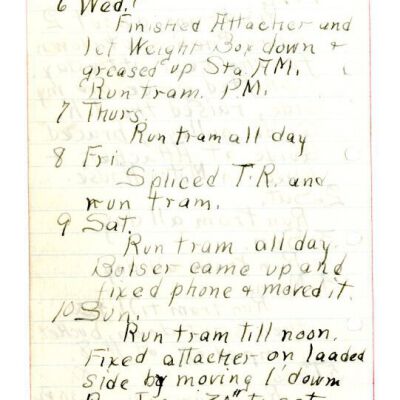 6 Wed.
Finished Attacher and
let Weight Box down +
greased up Sta, AM.
Run tram. PM.
7 Thurs.
Run tram all day
8 Fri
Spliced T.R. and
run tram.
9 Sat.
Run tram all day.
Bolser came up and
fixed phone & moved it.
10 Sun.
Run tram till noon.
Fixed attacher on loaded
side by moving 1' down